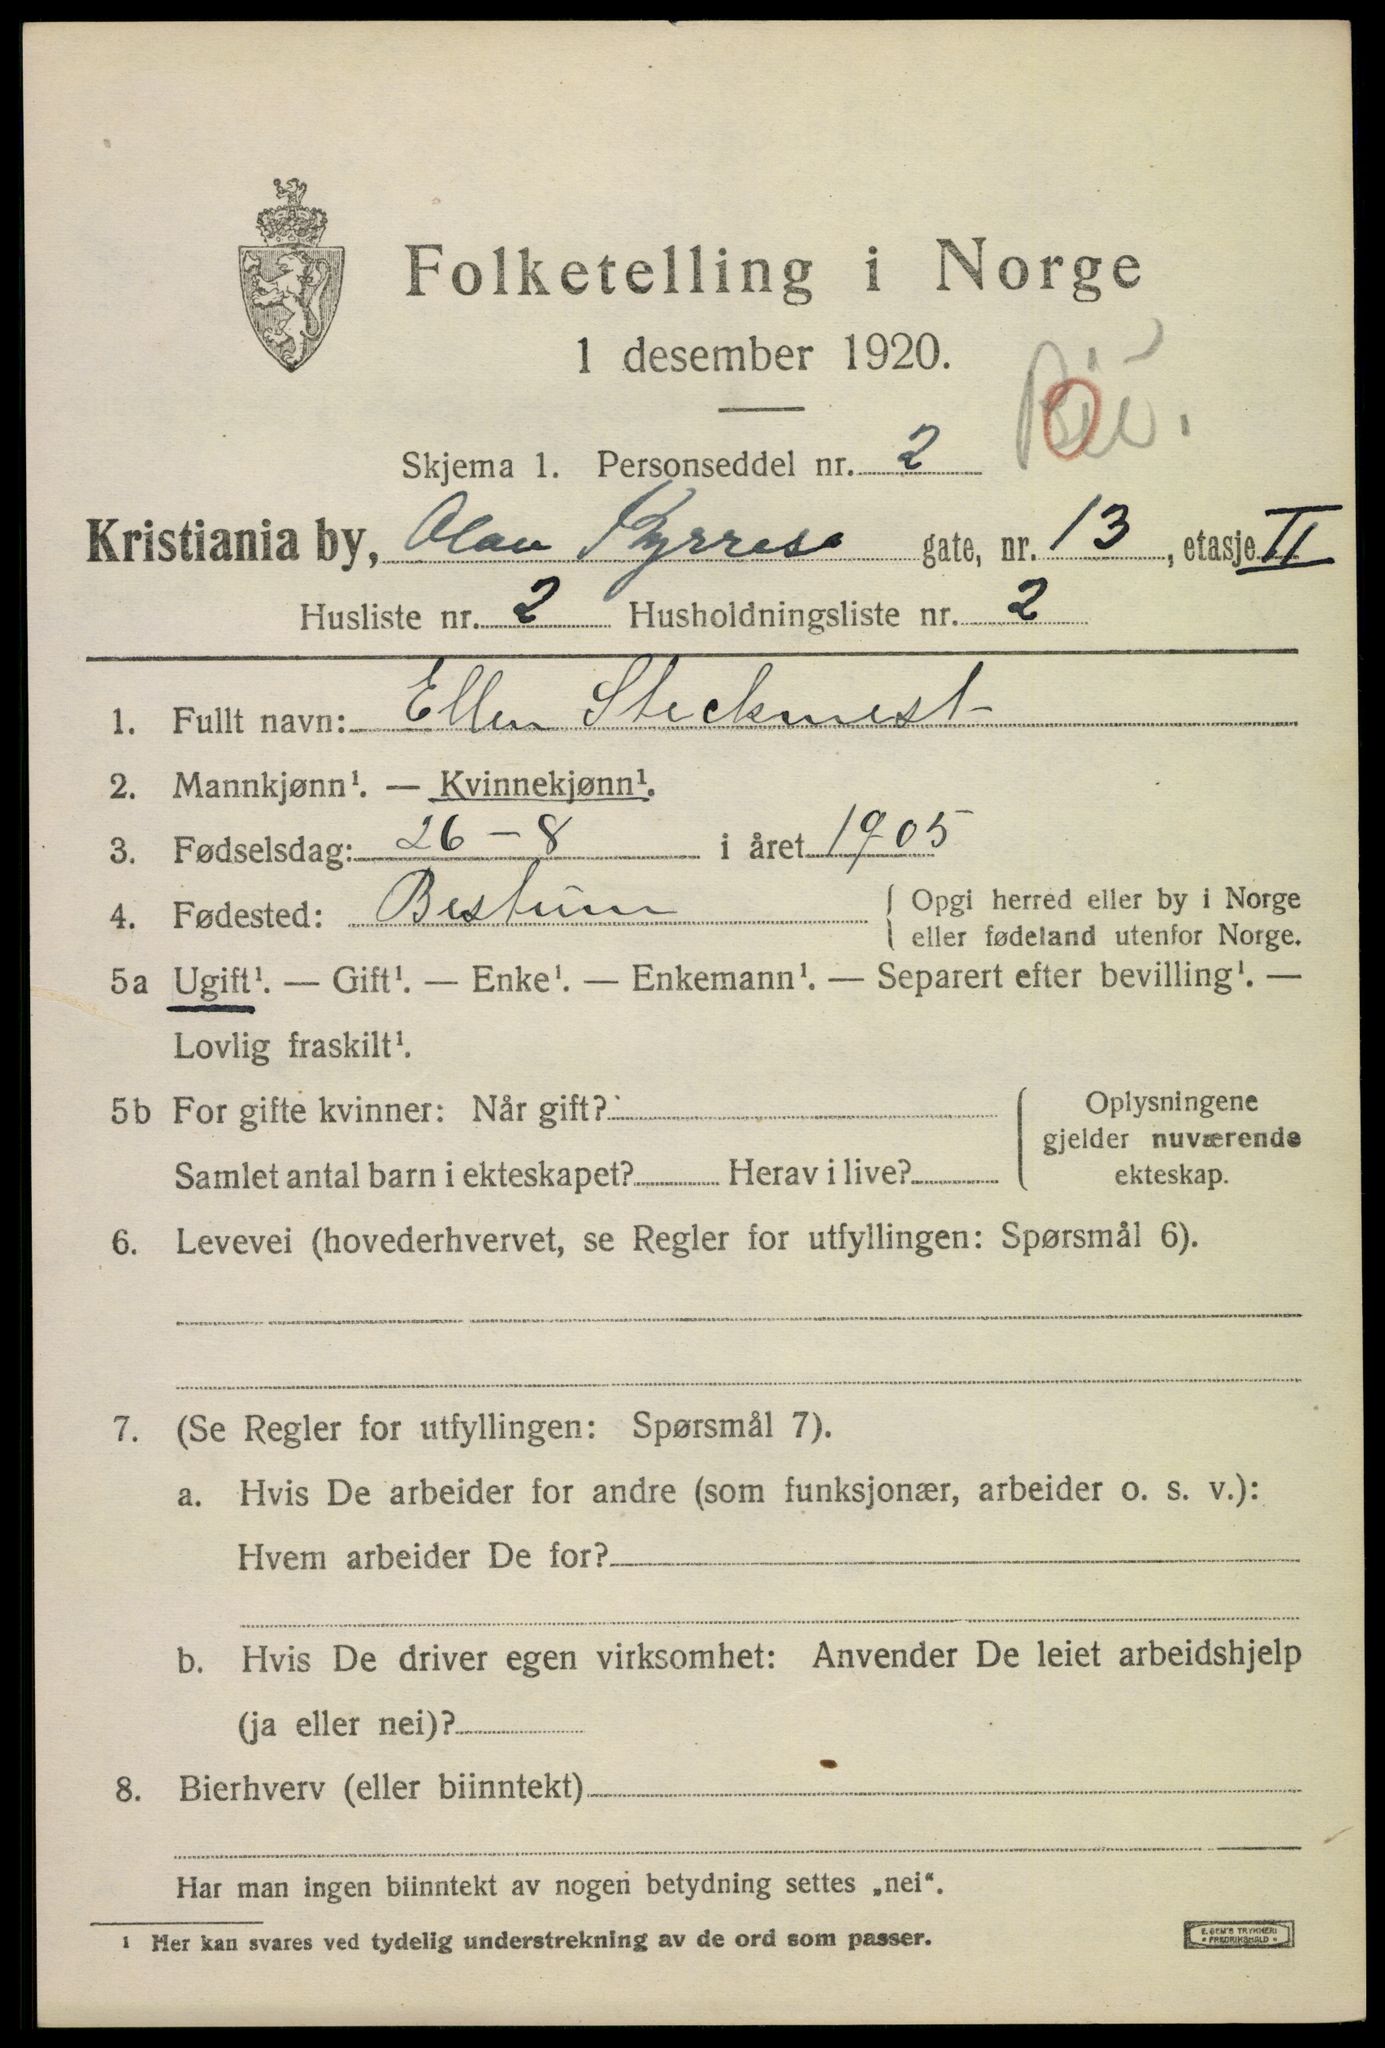 Folketelling i Norge
1 desember 1920.
Skjema 1. Personseddel nr. 2
Kristiania by, Olav Kyrres gate, nr. 13, etasje II
Husliste nr. 2 Husholdningsliste nr. 2
1. Fullt navn: Ellen Steckmest
2. Mannkjønn¹. — Kvinnekjønn¹.
3. Fødselsdag: 26 – 8 i året 1905
4. Fødested: Bestum { Opgi herred eller by i Norge
eller fødeland utenfor Norge.
5a Ugift¹. — Gift¹. — Enke¹. — Enkemann¹. — Separert efter bevilling¹. —
Lovlig fraskilt¹.
5b For gifte kvinner: Når gift?
Samlet antal barn i ekteskapet? Herav i live?
{ Oplysningene
gjelder nuværende
ekteskap.
6. Levevei (hovederhvervet, se Regler for utfyllingen: Spørsmål 6).
7. (Se Regler for utfyllingen: Spørsmål 7).
a. Hvis De arbeider for andre (som funksjonær, arbeider o. s. v.):
Hvem arbeider De for?
b. Hvis De driver egen virksomhet: Anvender De leiet arbeidshjelp
(ja eller nei)?
8. Bierhverv (eller biinntekt)
Har man ingen biinntekt av nogen betydning settes „nei“.
¹ Her kan svares ved tydelig understrekning av de ord som passer.
E. SEM'S TRYKKERI
FREDRIKSHALD